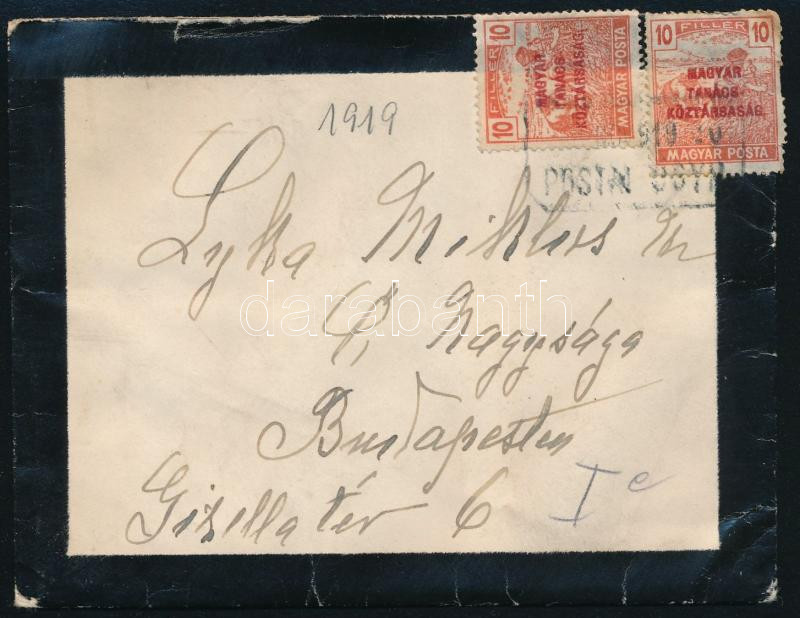 10 FILLER 10
MAGYAR
TANÁCS
KÖZTÁRSASÁG
MAGYAR POSTA
10 FILLER 10
MAGYAR
TANÁCS
KÖZTÁRSASÁG.
MAGYAR POSTA
919
POSTAI ÜGYN
1919
Lyka Miklós úr
Ő Nagysága
Budapesten
Gizella tér 6
I e
darabanth